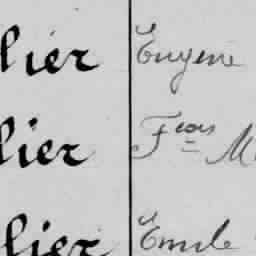 lier Eugene
lier Fcois M
lier Emile